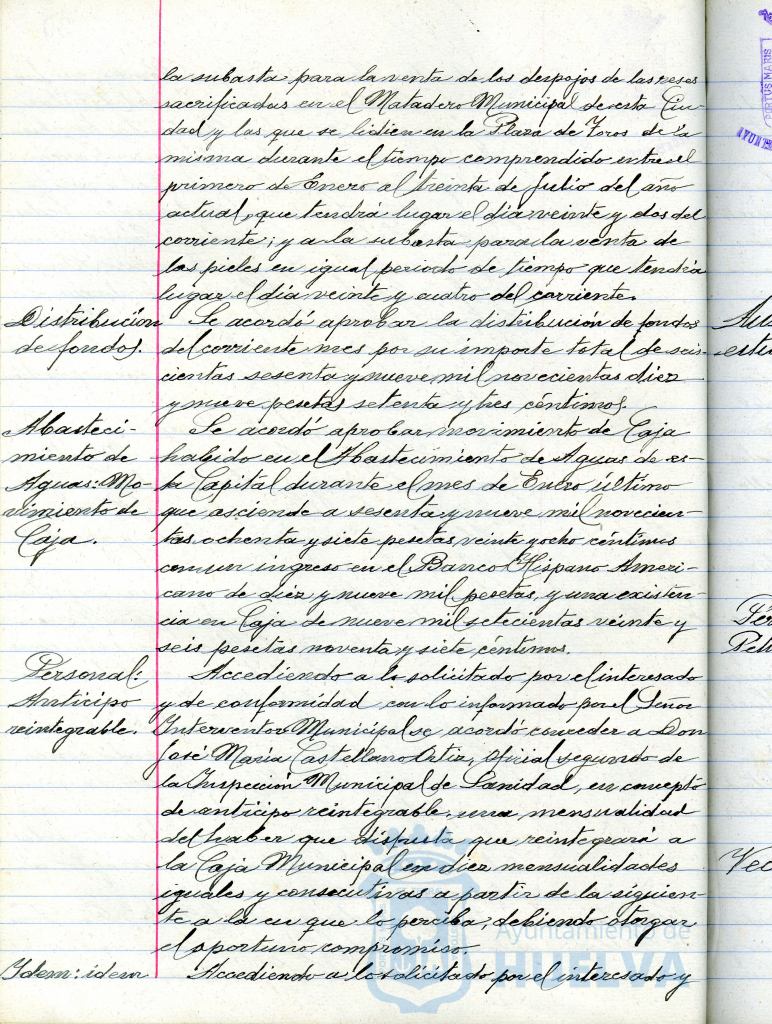 la subasta para la venta de los despojos de las reses
sacrificadas en el Matadero Municipal de esta Ciu-
dad y las que se lidien en la Plaza de Toros de la
misma durante el tiempo comprendido entre el
primero de Enero al treinta de Julio del año
actual, que tendrá lugar el día veinte y dos del
corriente; y a la subasta para la venta de
las pieles en igual periodo de tiempo que tendrá
lugar el día veinte y cuatro del corriente.
Distribución
de fondos.
Se acordó aprobar la distribución de fondos
del corriente mes por su importe total de seis-
cientas sesenta y nueve mil novecientas diez
y nueve pesetas setenta y tres céntimos.
Abasteci-
miento de
Aguas: Mo-
vimiento de
Caja.
Se acordó aprobar movimiento de Caja
habido en el Abastecimiento de Aguas de es-
ta Capital durante el mes de Enero último
que asciende a sesenta y nueve mil novecien-
tas ochenta y siete pesetas veinte y ocho céntimos
con un ingreso en el Banco Hispano Ameri-
cano de diez y nueve mil pesetas, y una existen-
cia en Caja de nueve mil setecientas veinte y
seis pesetas noventa y siete céntimos.
Personal:
Anticipo
reintegrable.
Accediendo a lo solicitado por el interesado
y de conformidad con lo informado por el Señor
Interventor Municipal se acordó conceder a Don
José María Castellano Ortiz, Oficial segundo de
la Inspección Municipal de Sanidad, en concepto
de anticipo reintegrable, una mensualidad
del haber que disfruta que reintegrará a
la Caja Municipal en diez mensualidades
iguales y consecutivas a partir de la siguien-
te a la en que lo perciba, debiendo otorgar
el oportuno compromiso.
Idem: idem
Accediendo a lo solicitado por el interesado y
Ayuntamiento de
HUELVA